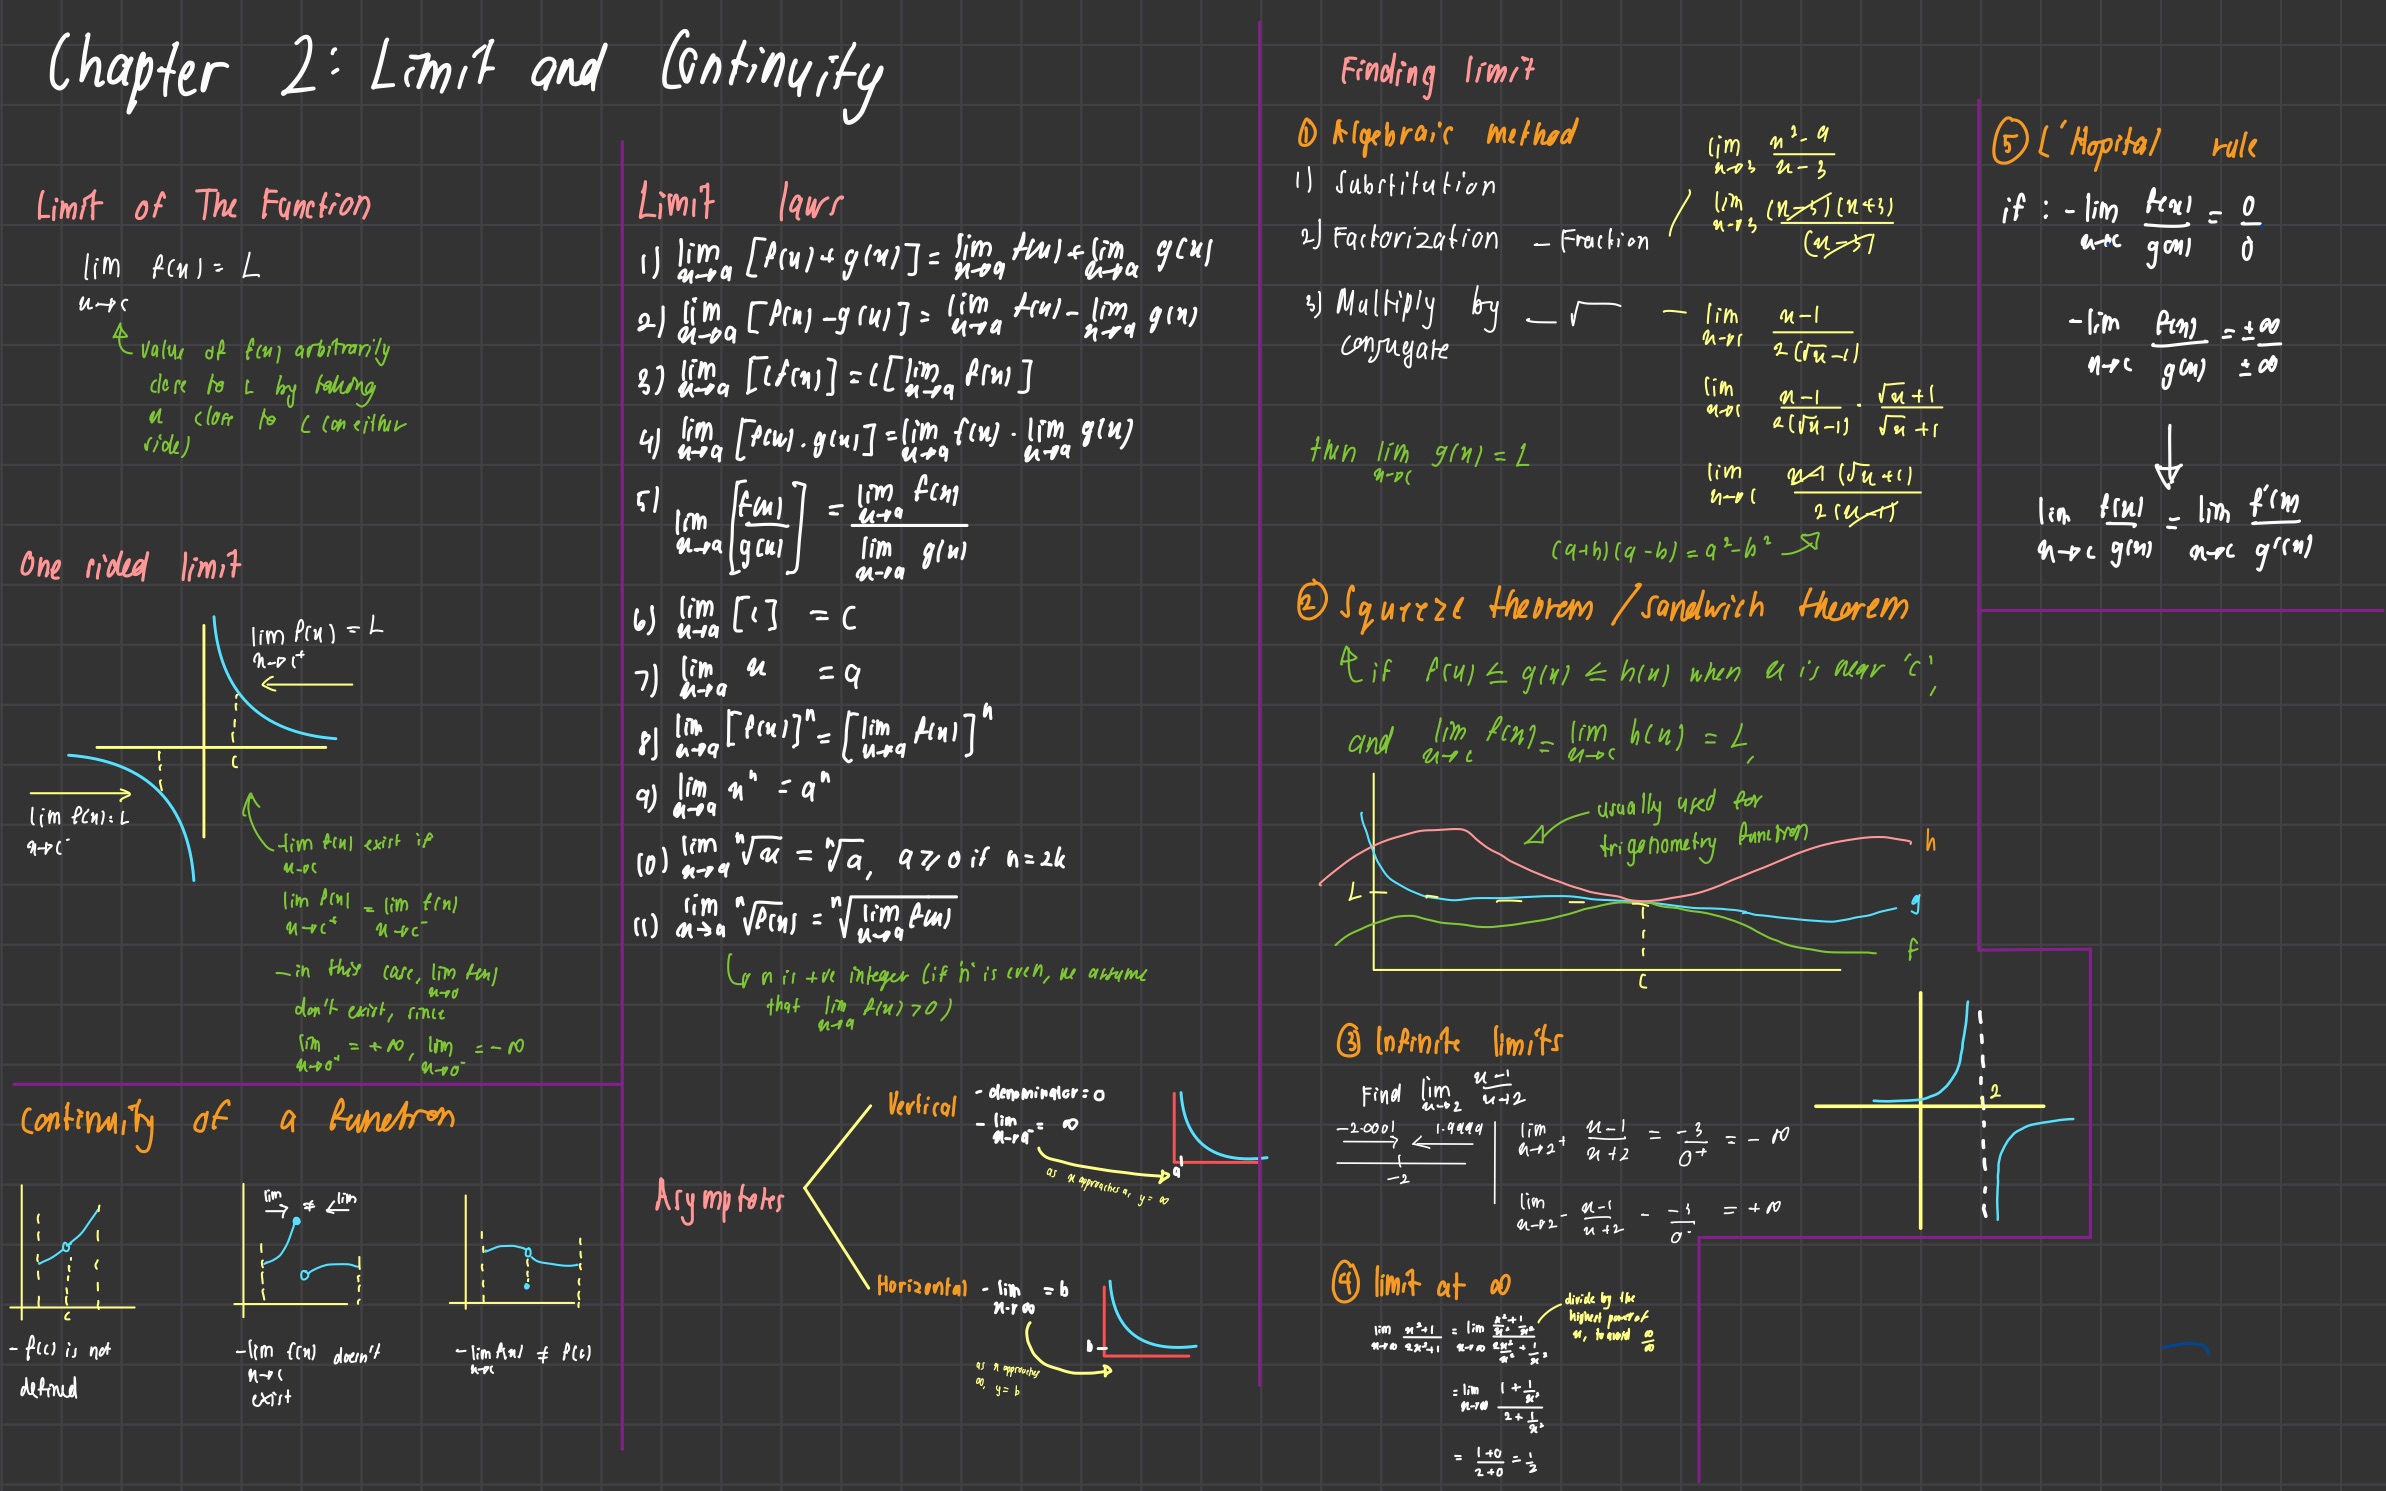 Chapter 2: Limit and Continuity
Limit of The Function
lim f(x) = L
x→c
value of f(x) arbitrarily
close to L by taking
x close to c (on either
side)
One sided limit
lim f(x) = L
x→c⁺
c
lim f(x) = L
x→c⁻
- lim f(x) exist if
x→c
lim f(x) = lim f(x)
x→c⁺ x→c⁻
- in this case, lim f(x)
x→0
don't exist, since
lim = +∞, lim = -∞
x→0⁺ x→0⁻
Continuity of a function
c
lim ≠ lim
→ ←
- f(c) is not
defined
- lim f(x) doesn't
x→c
exist
- lim f(x) ≠ f(c)
x→c
Limit laws
1) lim x→a [f(x) + g(x)] = lim x→a f(x) + lim x→a g(x)
2) lim x→a [f(x) - g(x)] = lim x→a f(x) - lim x→a g(x)
3) lim x→a [cf(x)] = c[lim x→a f(x)]
4) lim x→a [f(x) . g(x)] = lim x→a f(x) · lim x→a g(x)
5) lim x→a [f(x)/g(x)] = lim x→a f(x) / lim x→a g(x)
6) lim x→a [c] = c
7) lim x→a x = a
8) lim x→a [f(x)]ⁿ = [lim x→a f(x)]ⁿ
9) lim x→a xⁿ = aⁿ
10) lim x→a ⁿ√x = ⁿ√a, a ≥ 0 if n = 2k
11) lim x→a ⁿ√f(x) = ⁿ√lim x→a f(x)
n is +ve integer (if 'n' is even, we assume
that lim x→a f(x) > 0)
Asymptotes
Vertical
- denominator = 0
- lim x→a⁻ = ∞
as x approaches a, y = ∞
a
Horizontal
- lim x→∞ = b
as x approaches
∞, y = b
b
Finding limit
① Algebraic method
1) Substitution
2) Factorization - Fraction
lim x→3 x²-9 / x-3
lim x→3 (x-3)(x+3) / (x-3)
3) Multiply by — √
conjugate
- lim x→1 x-1 / 2(√x-1)
lim x→1 x-1 / 2(√x-1) · √x+1 / √x+1
lim x→1 x-1 (√x+1) / 2(x-1)
(a+b)(a-b) = a²-b²
then lim x→c g(x) = L
② Squeeze theorem / sandwich theorem
if f(x) ≤ g(x) ≤ h(x) when x is near 'c',
and lim x→c f(x) = lim x→c h(x) = L,
usually used for
trigonometry function
h
L
g
f
c
③ Infinite limits
Find lim x→2 x-1 / x+2
-2.0001 1.9999
-2
lim x→2⁺ x-1 / x+2 = -3 / 0⁺ = -∞
lim x→2⁻ x-1 / x+2 - -3 / 0⁻ = +∞
2
④ limit at ∞
lim x→∞ x²+1 / 2x²+1 = lim x→∞ x²/x² + 1/x² / 2x²/x² + 1/x²
divide by the
highest power of
x, to avoid ∞/∞
= lim x→∞ 1 + 1/x² / 2 + 1/x²
= 1+0 / 2+0 = 1/2
⑤ L'Hopital rule
if : - lim x→c f(x) / g(x) = 0 / 0
- lim x→c f(x) / g(x) = ±∞ / ±∞
lim x→c f(x) / g(x) = lim x→c f'(x) / g'(x)